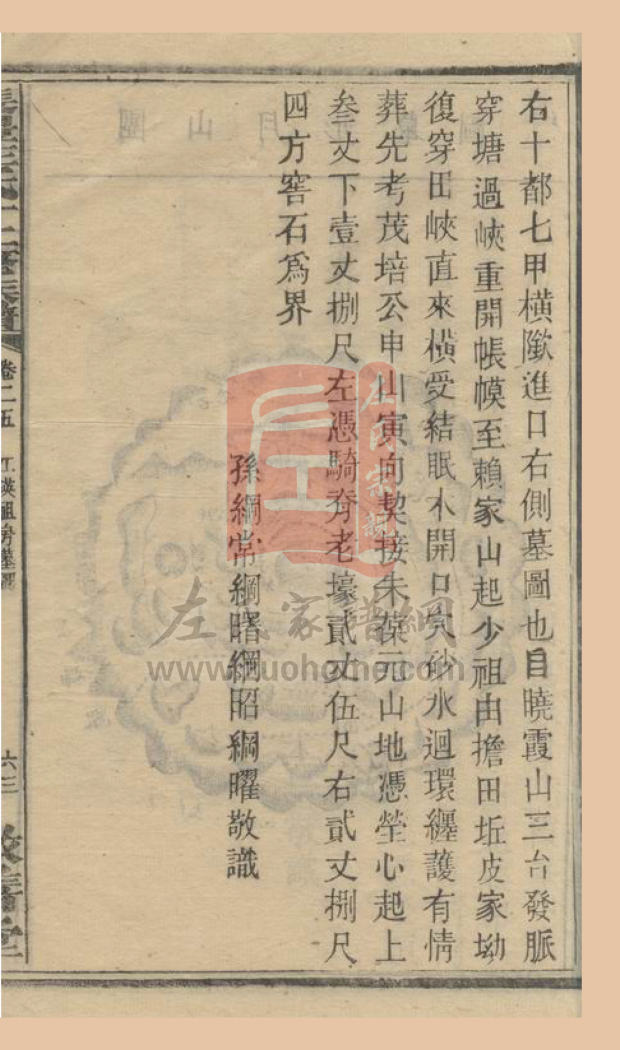 右十都七甲橫隞進口右側墓圖也自曉霞山三台發脈
穿塘過峽重開帳幙至賴家山起少祖由擔田坵皮家坳
復穿田峽直來橫受結眠木開口穴砂水迴環纏護有情
葬先考茂培公申山寅向契接朱葆元山地憑塋心起上
叁丈下壹丈捌尺左憑騎脊老壕貳丈伍尺右貳丈捌尺
四方窖石爲界
孫綱常綱曙綱昭綱曜敬識
卷二五
六三
左氏家譜網
www.zuohome.com